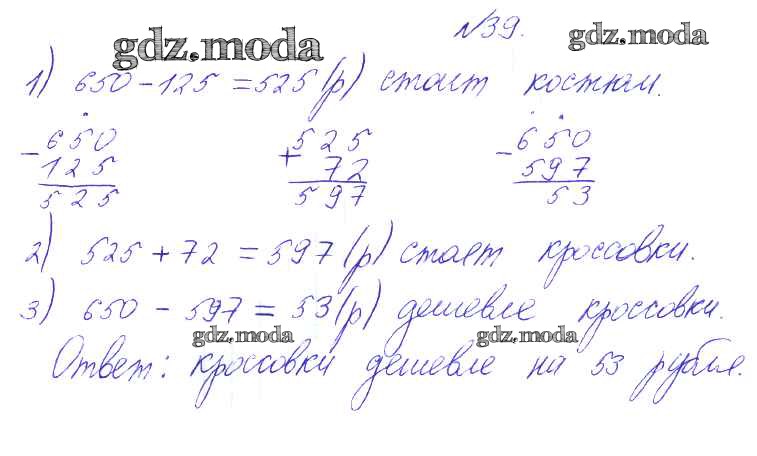 №39.
gdz.moda gdz.moda
1) 650 - 125 = 525 (р) стоит костюм.
- 650 + 525 - 650
125 72 597
525 597 53
2) 525 + 72 = 597 (р) стоят кроссовки.
3) 650 - 597 = 53 (р) дешевле кроссовки.
gdz.moda gdz.moda
Ответ: кроссовки дешевле на 53 рубля.